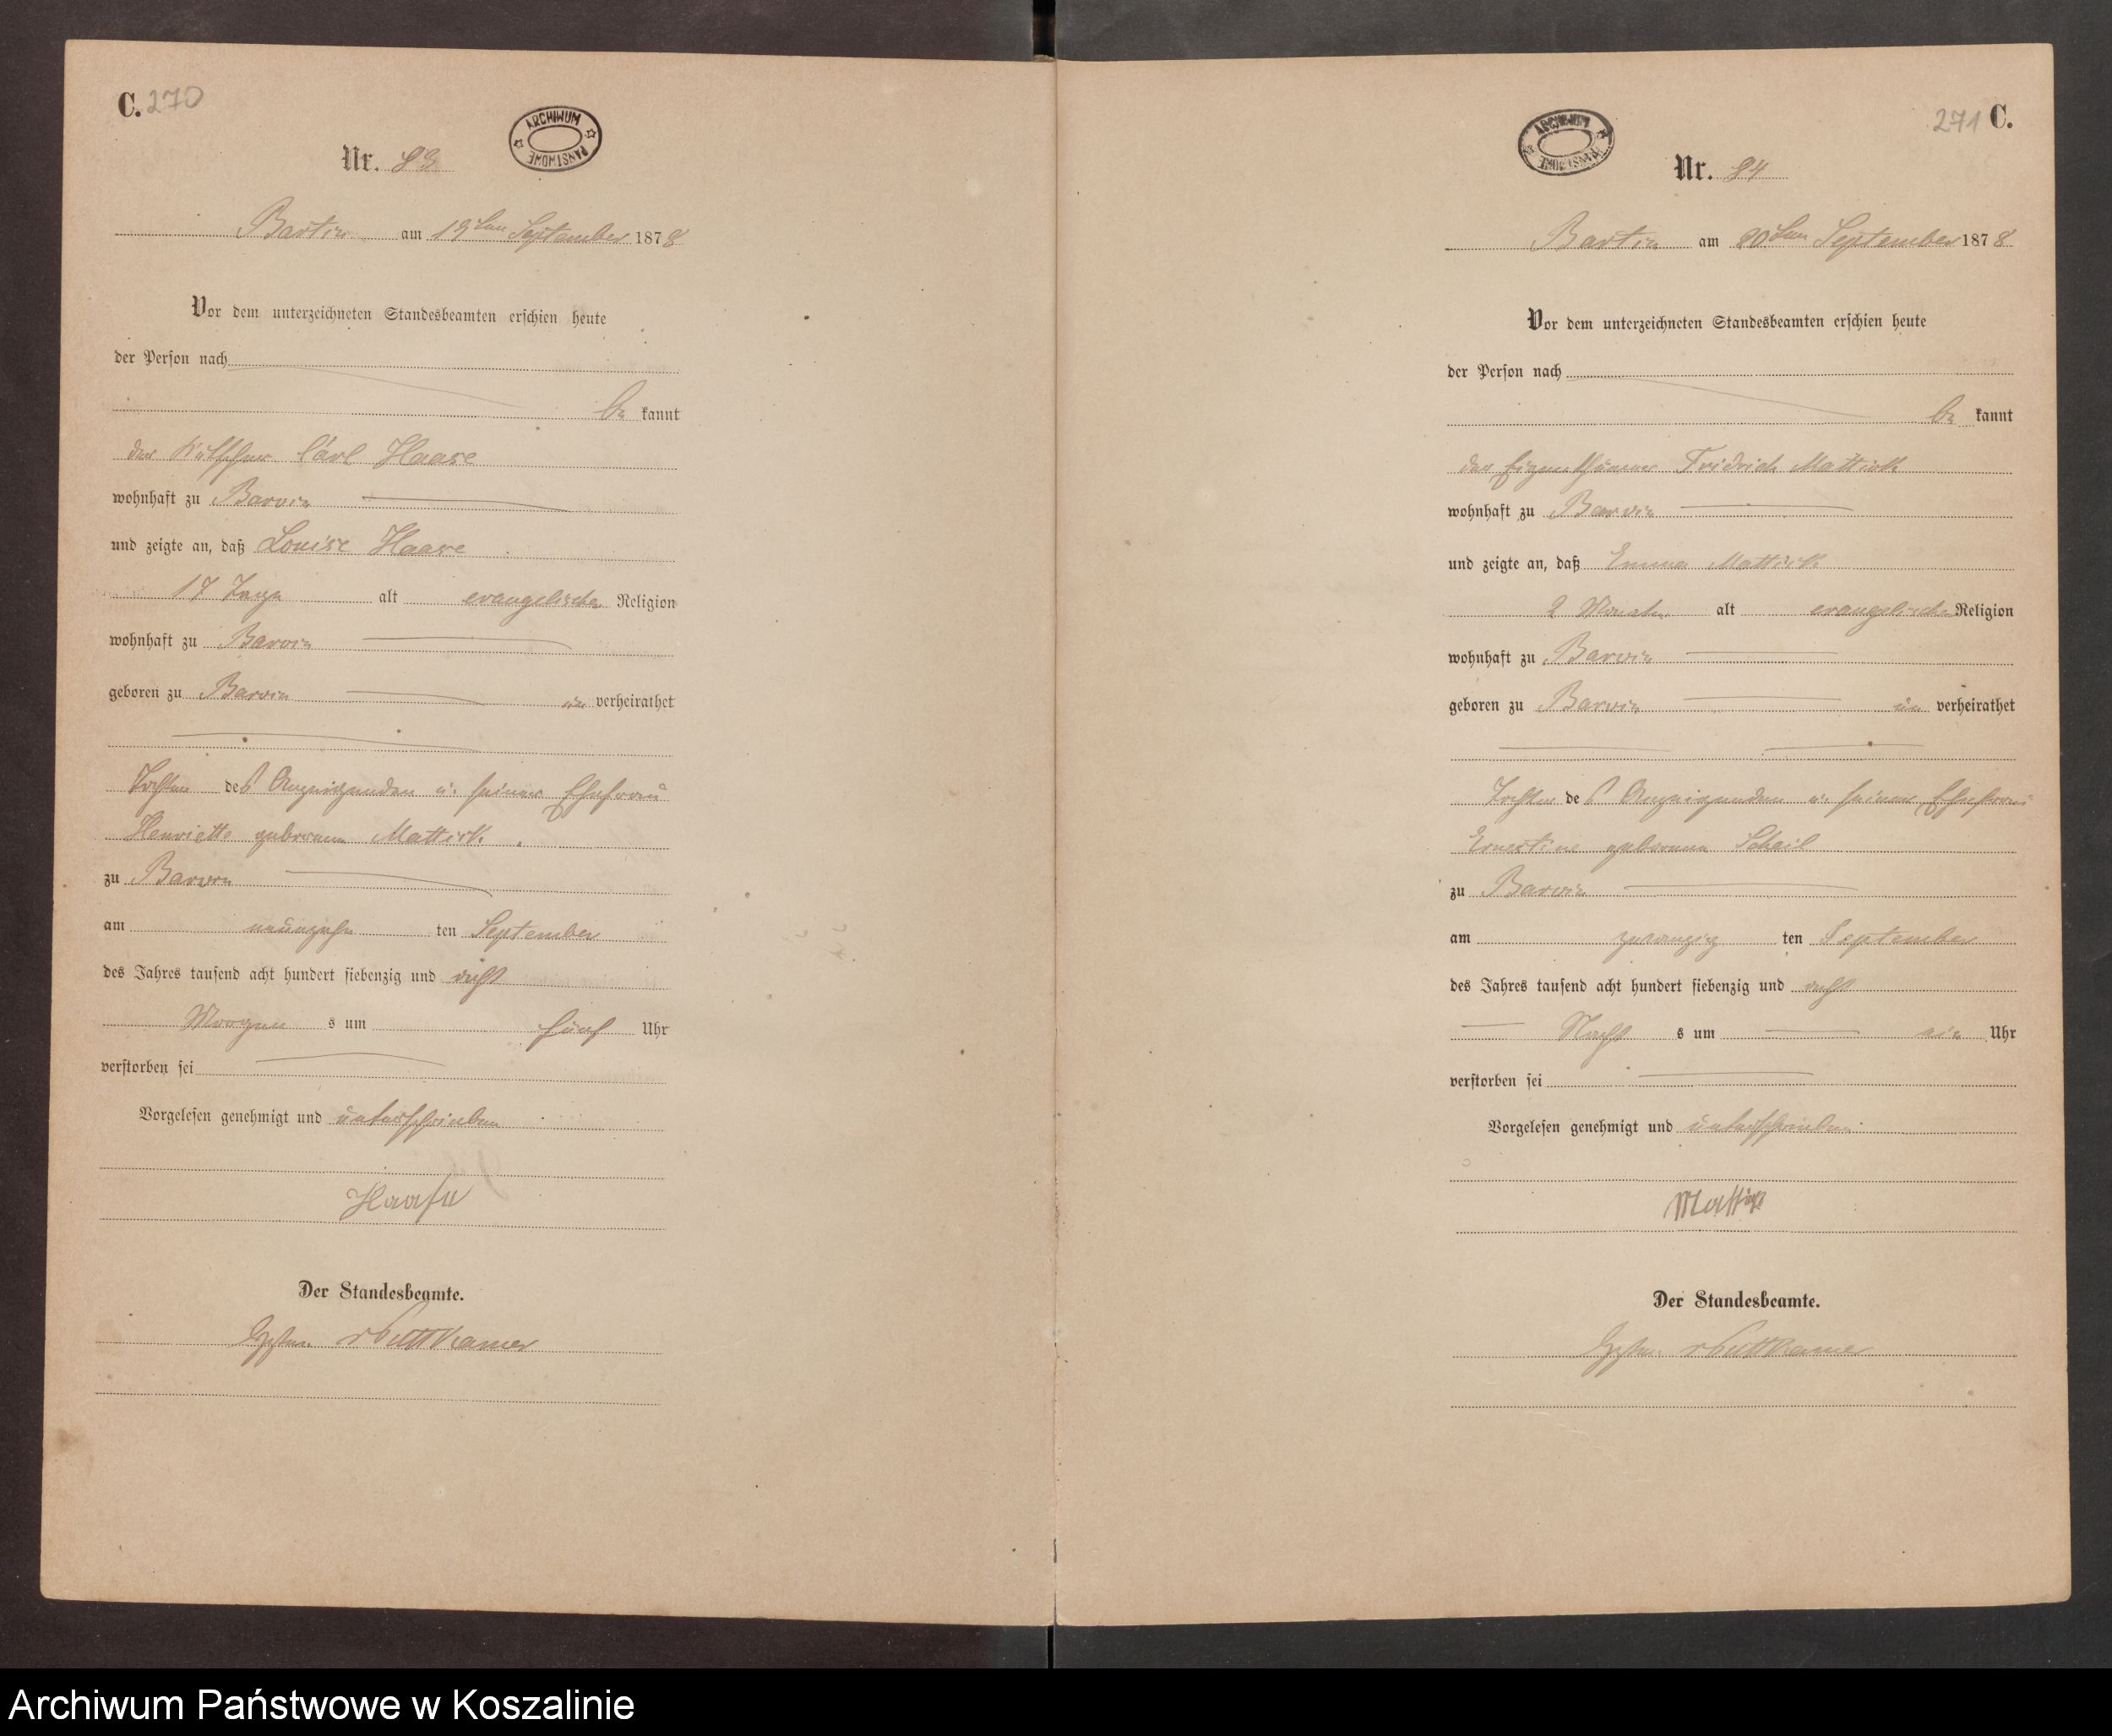 C. 270
ARCHIWUM PAŃSTWOWE
Nr. 83
Bartin am 19ten September 1878
Vor dem unterzeichneten Standesbeamten erschien heute
der Person nach
be kannt
der Carl Haase
wohnhaft zu Barvin
und zeigte an, daß Louise Haase
17 Tage alt evangelischer Religion
wohnhaft zu Barvin
geboren zu Barvin un verheirathet
Tochter des Anzeigenden u. seiner Ehefrau
Henriette geborenen Mattick.
zu Barvin
am neunzehn ten September
des Jahres tausend acht hundert siebenzig und acht
Morgen s um fünf Uhr
verstorben sei
Vorgelesen genehmigt und unterschrieben
Haase
Der Standesbeamte.
v Puttkamer
271 C.
ARCHIWUM PAŃSTWOWE
Nr. 84
Bartin am 20ten September 1878
Vor dem unterzeichneten Standesbeamten erschien heute
der Person nach
be kannt
der Eigenthümer Fridrich Mattick
wohnhaft zu Barvin
und zeigte an, daß Emma Mattick
2 Monate alt evangelischer Religion
wohnhaft zu Barvin
geboren zu Barvin un verheirathet
Tochter des Anzeigenden u. seiner Ehefrau
Ernestine geborenen Scheil
zu Barvin
am zwanzig ten September
des Jahres tausend acht hundert siebenzig und acht
Nacht s um ein Uhr
verstorben sei
Vorgelesen genehmigt und unterschrieben
Mattick
Der Standesbeamte.
v Puttkamer
Archiwum Państwowe w Koszalinie